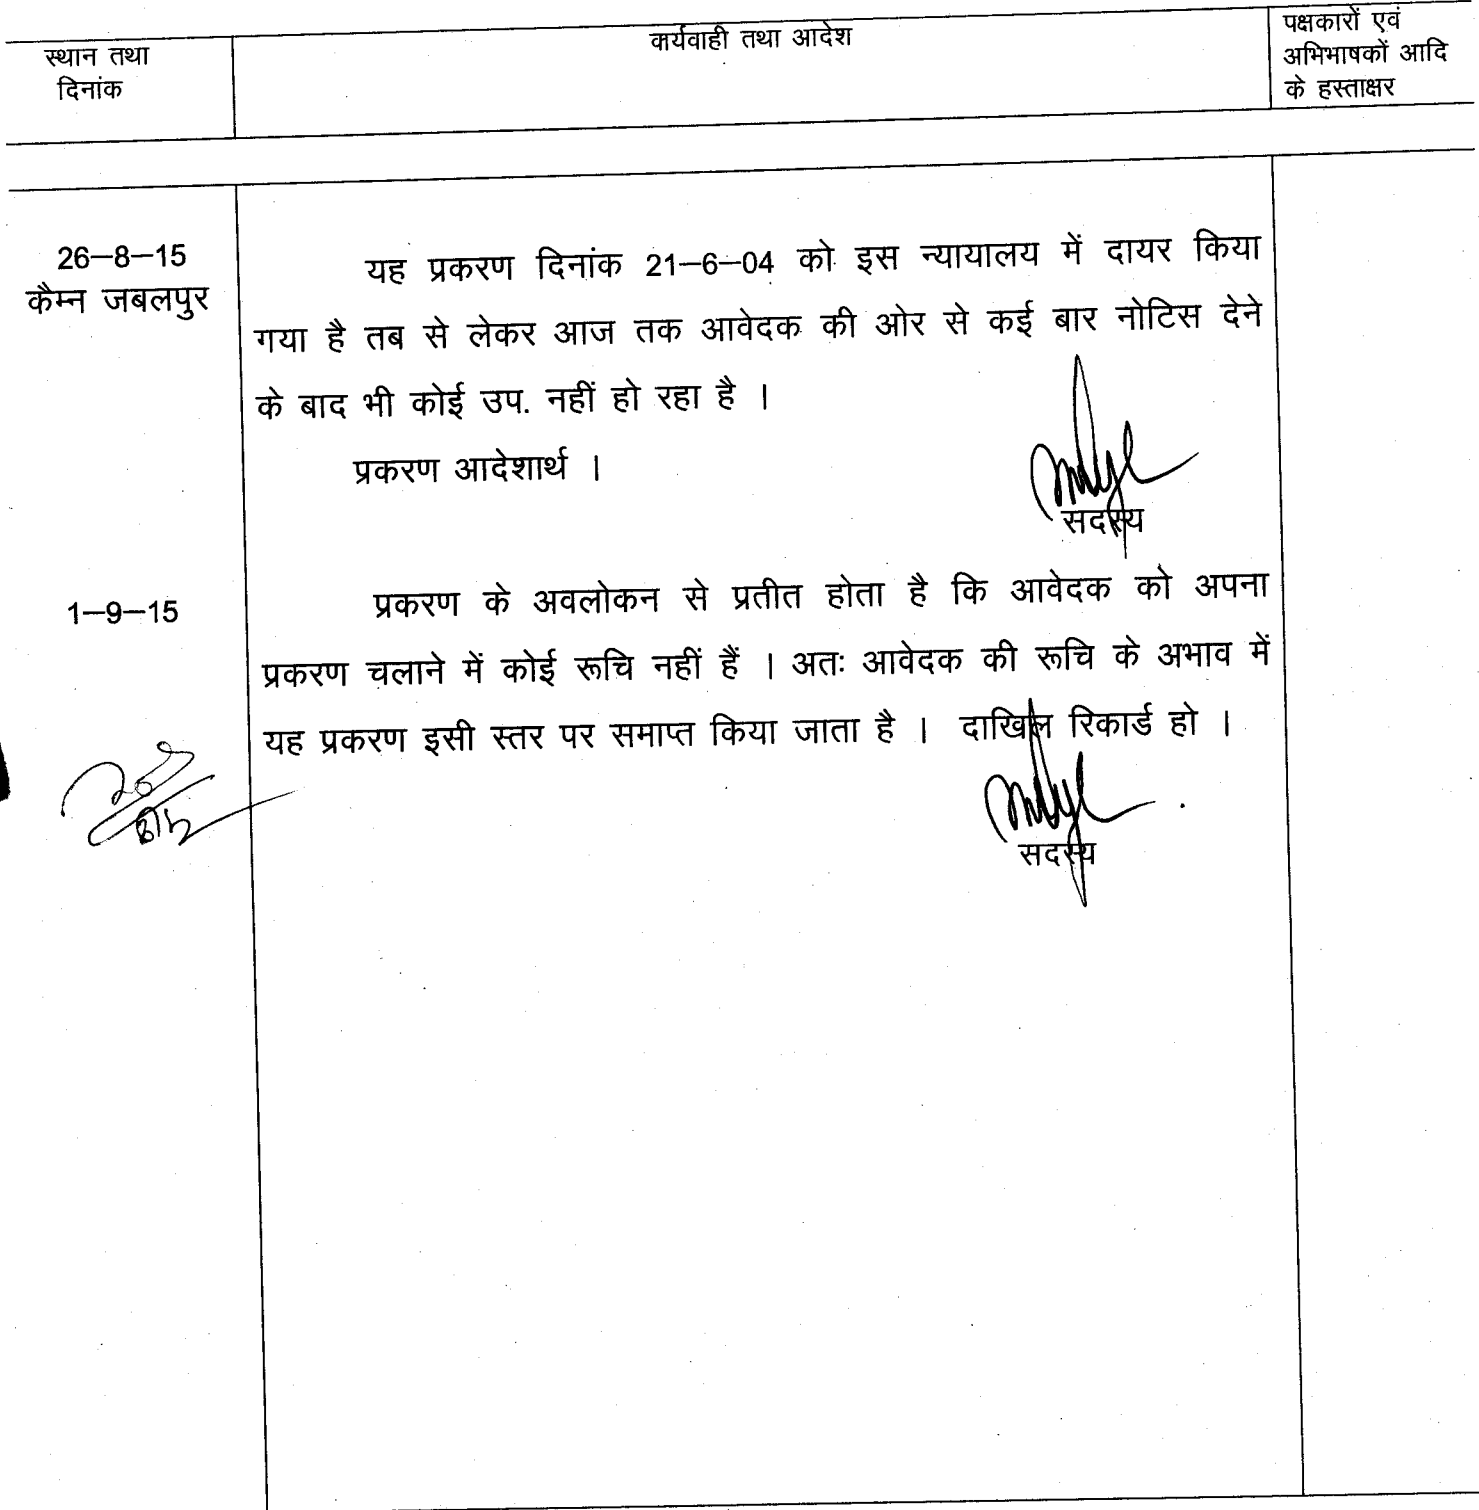 स्थान तथा
दिनांक
कार्यवाही तथा आदेश
पक्षकारों एवं
अभिभाषकों आदि
के हस्ताक्षर
26–8–15
कैम्न जबलपुर
यह प्रकरण दिनांक 21–6–04 को इस न्यायालय में दायर किया
गया है तब से लेकर आज तक आवेदक की ओर से कई बार नोटिस देने
के बाद भी कोई उप. नहीं हो रहा है ।
प्रकरण आदेशार्थ ।
सदस्य
1–9–15
प्रकरण के अवलोकन से प्रतीत होता है कि आवेदक को अपना
प्रकरण चलाने में कोई रूचि नहीं हैं । अतः आवेदक की रूचि के अभाव में
यह प्रकरण इसी स्तर पर समाप्त किया जाता है । दाखिल रिकार्ड हो ।
सदस्य